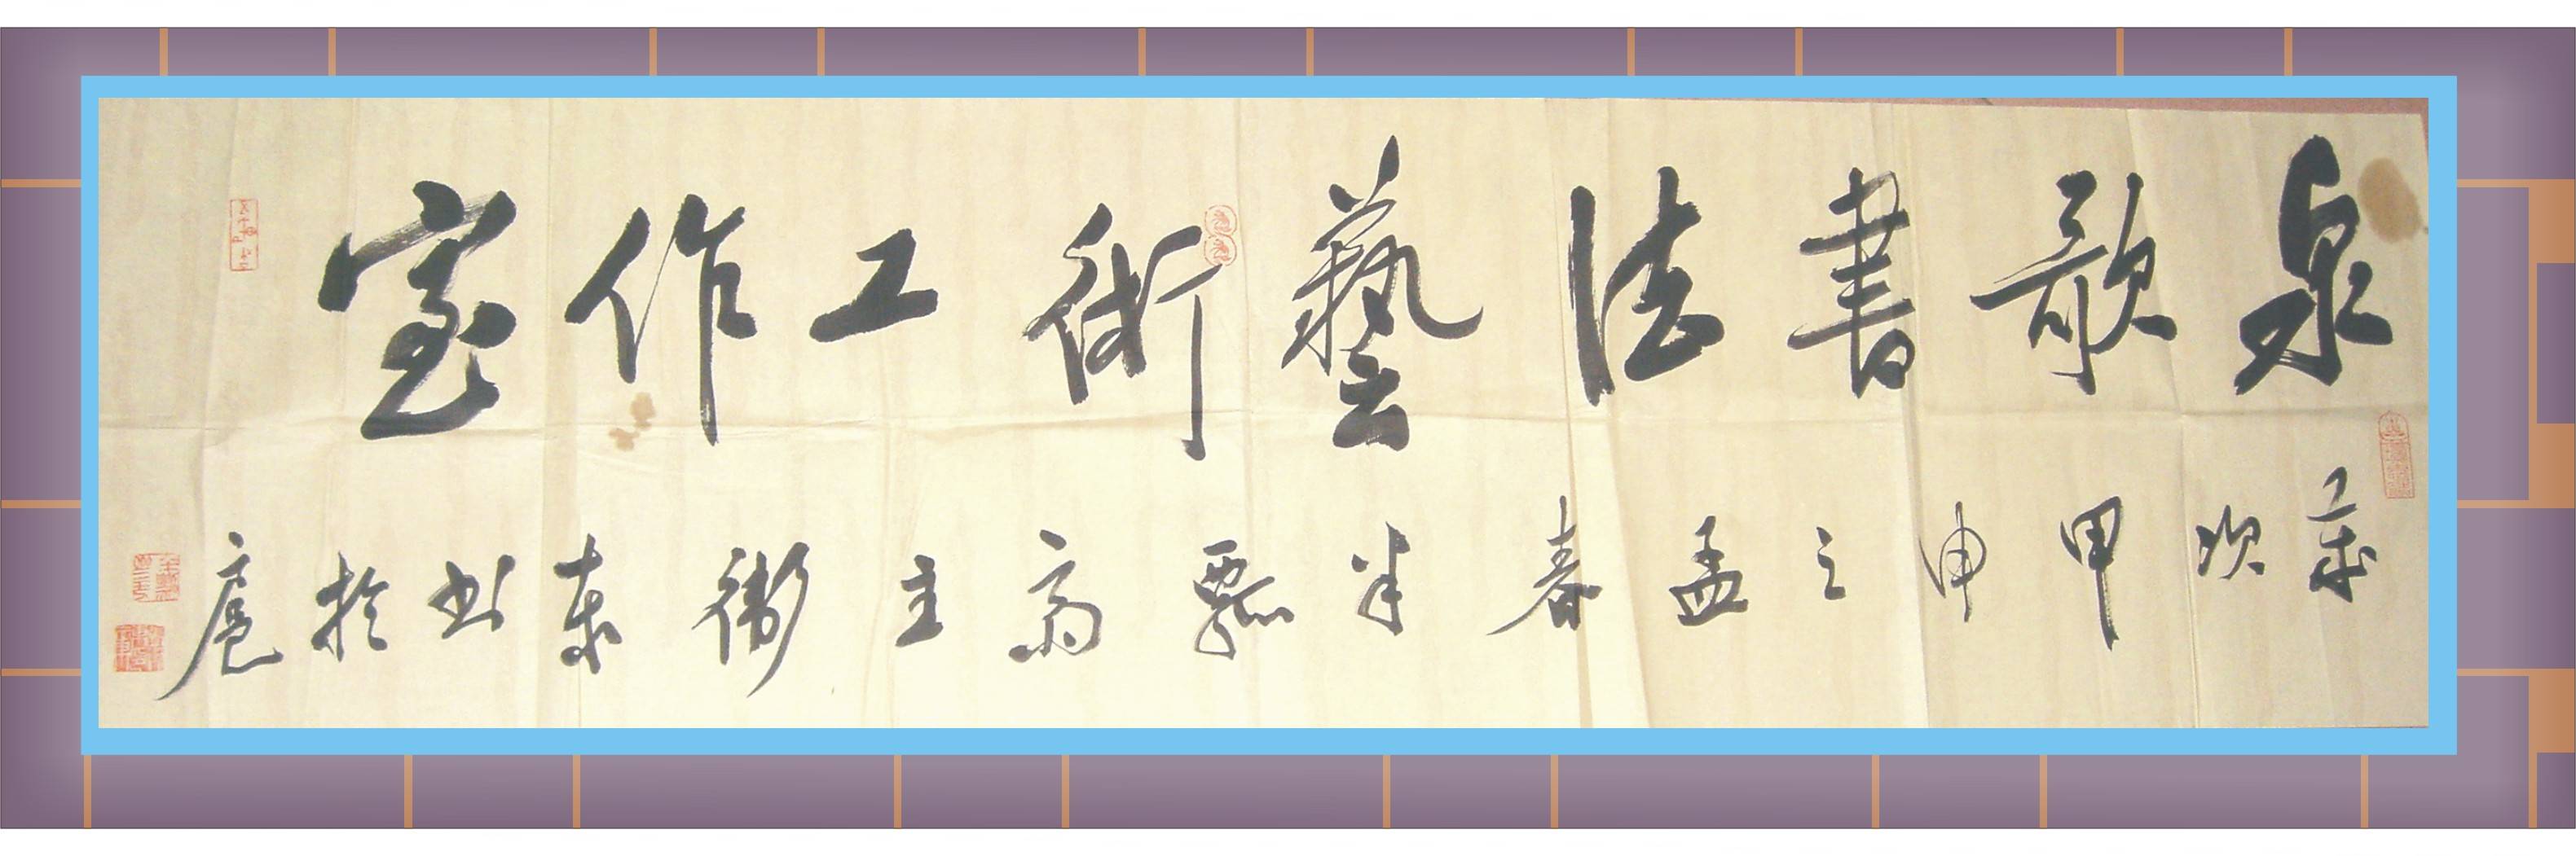 泉歌書法藝術工作室
歲次甲申之孟春半瓢齋主衛東書於扈